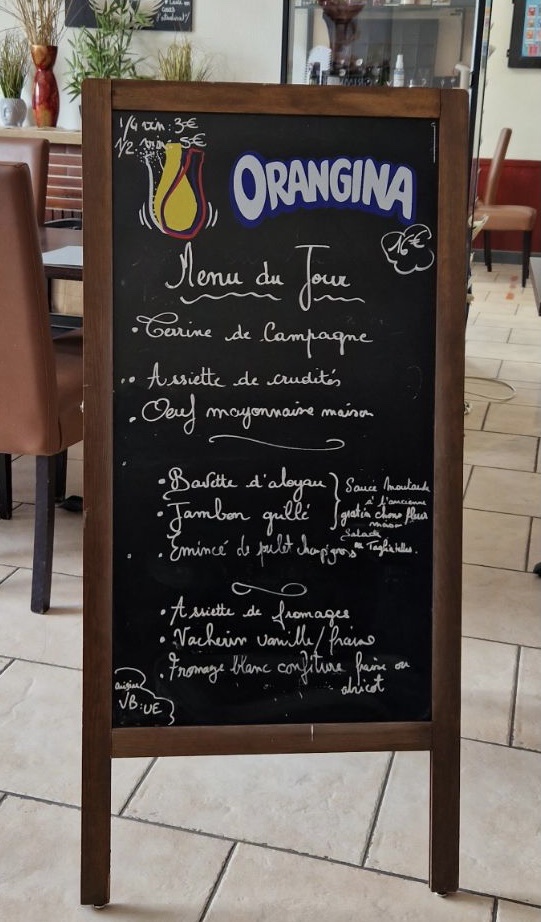 1/4 vin: 3€
1/2 vin: 5€
ORANGINA
16€
Menu du Jour
• Terrine de Campagne
• Assiette de crudités
• Oeuf mayonnaise maison
• Bavette d'aloyau
• Jambon grillé
• Émincé de poulet champignons
Sauce moutarde
à l'ancienne
gratin choux fleur
maison
Salade
ou Tagliatelles.
• Assiette de fromages
• Vacherin vanille/fraise
• Fromage blanc confiture fraise ou
abricot
VB: UE